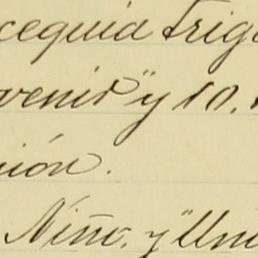 cequia Trig
venir" y 10.
ión.
Niño. y "Uni